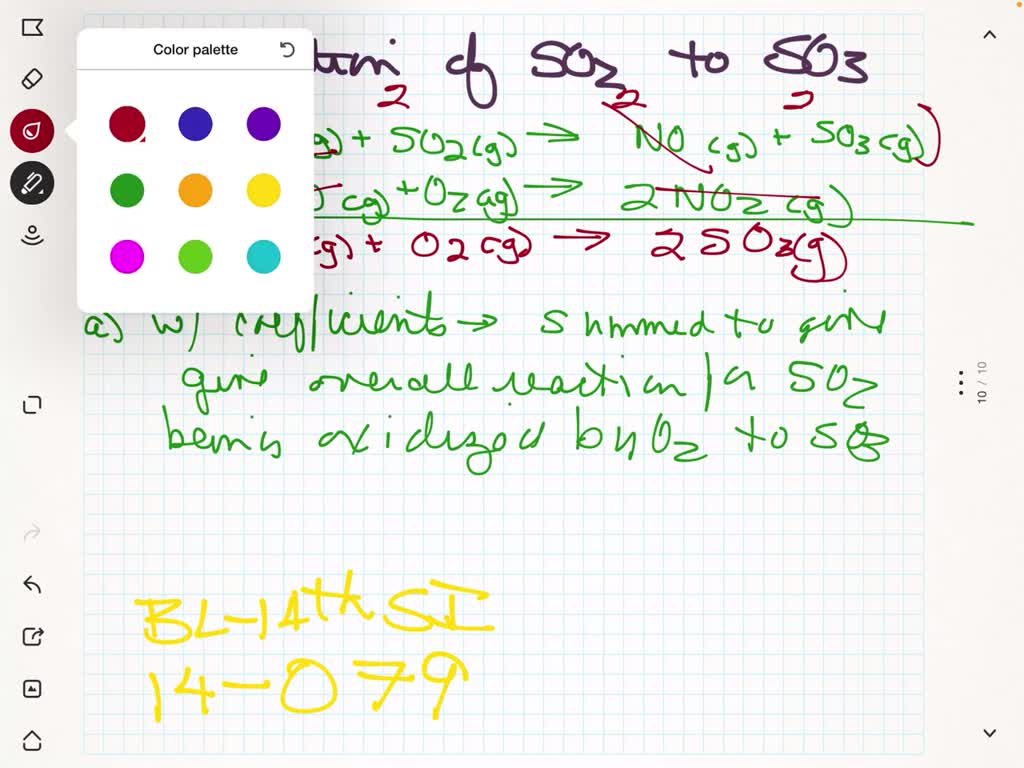 Color palette
of SO2 to SO3
2 2 2
g) + SO2(g) → NO (g) + SO3(g)
(g) + O2(g) → 2NO2(g)
(g) + O2(g) → 2SO3(g)
a) w/ coefficients → summed to give
give overall reaction / a SO2
being oxidized by O2 to SO3
10 / 10
BL-14th SI
14-079